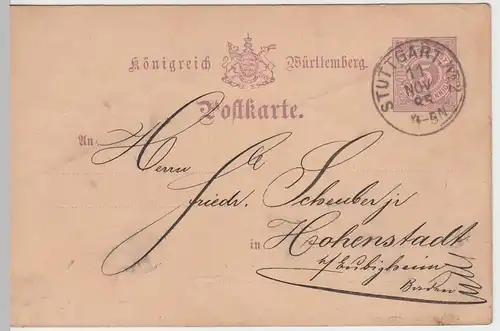 Königreich Württemberg.
STUTTGART No 2
11
NOV
85
4-5N.
5
Postkarte.
An Herrn
Friedr. Scheuber jr
in Hohenstadt
b/ Eubigheim
Baden